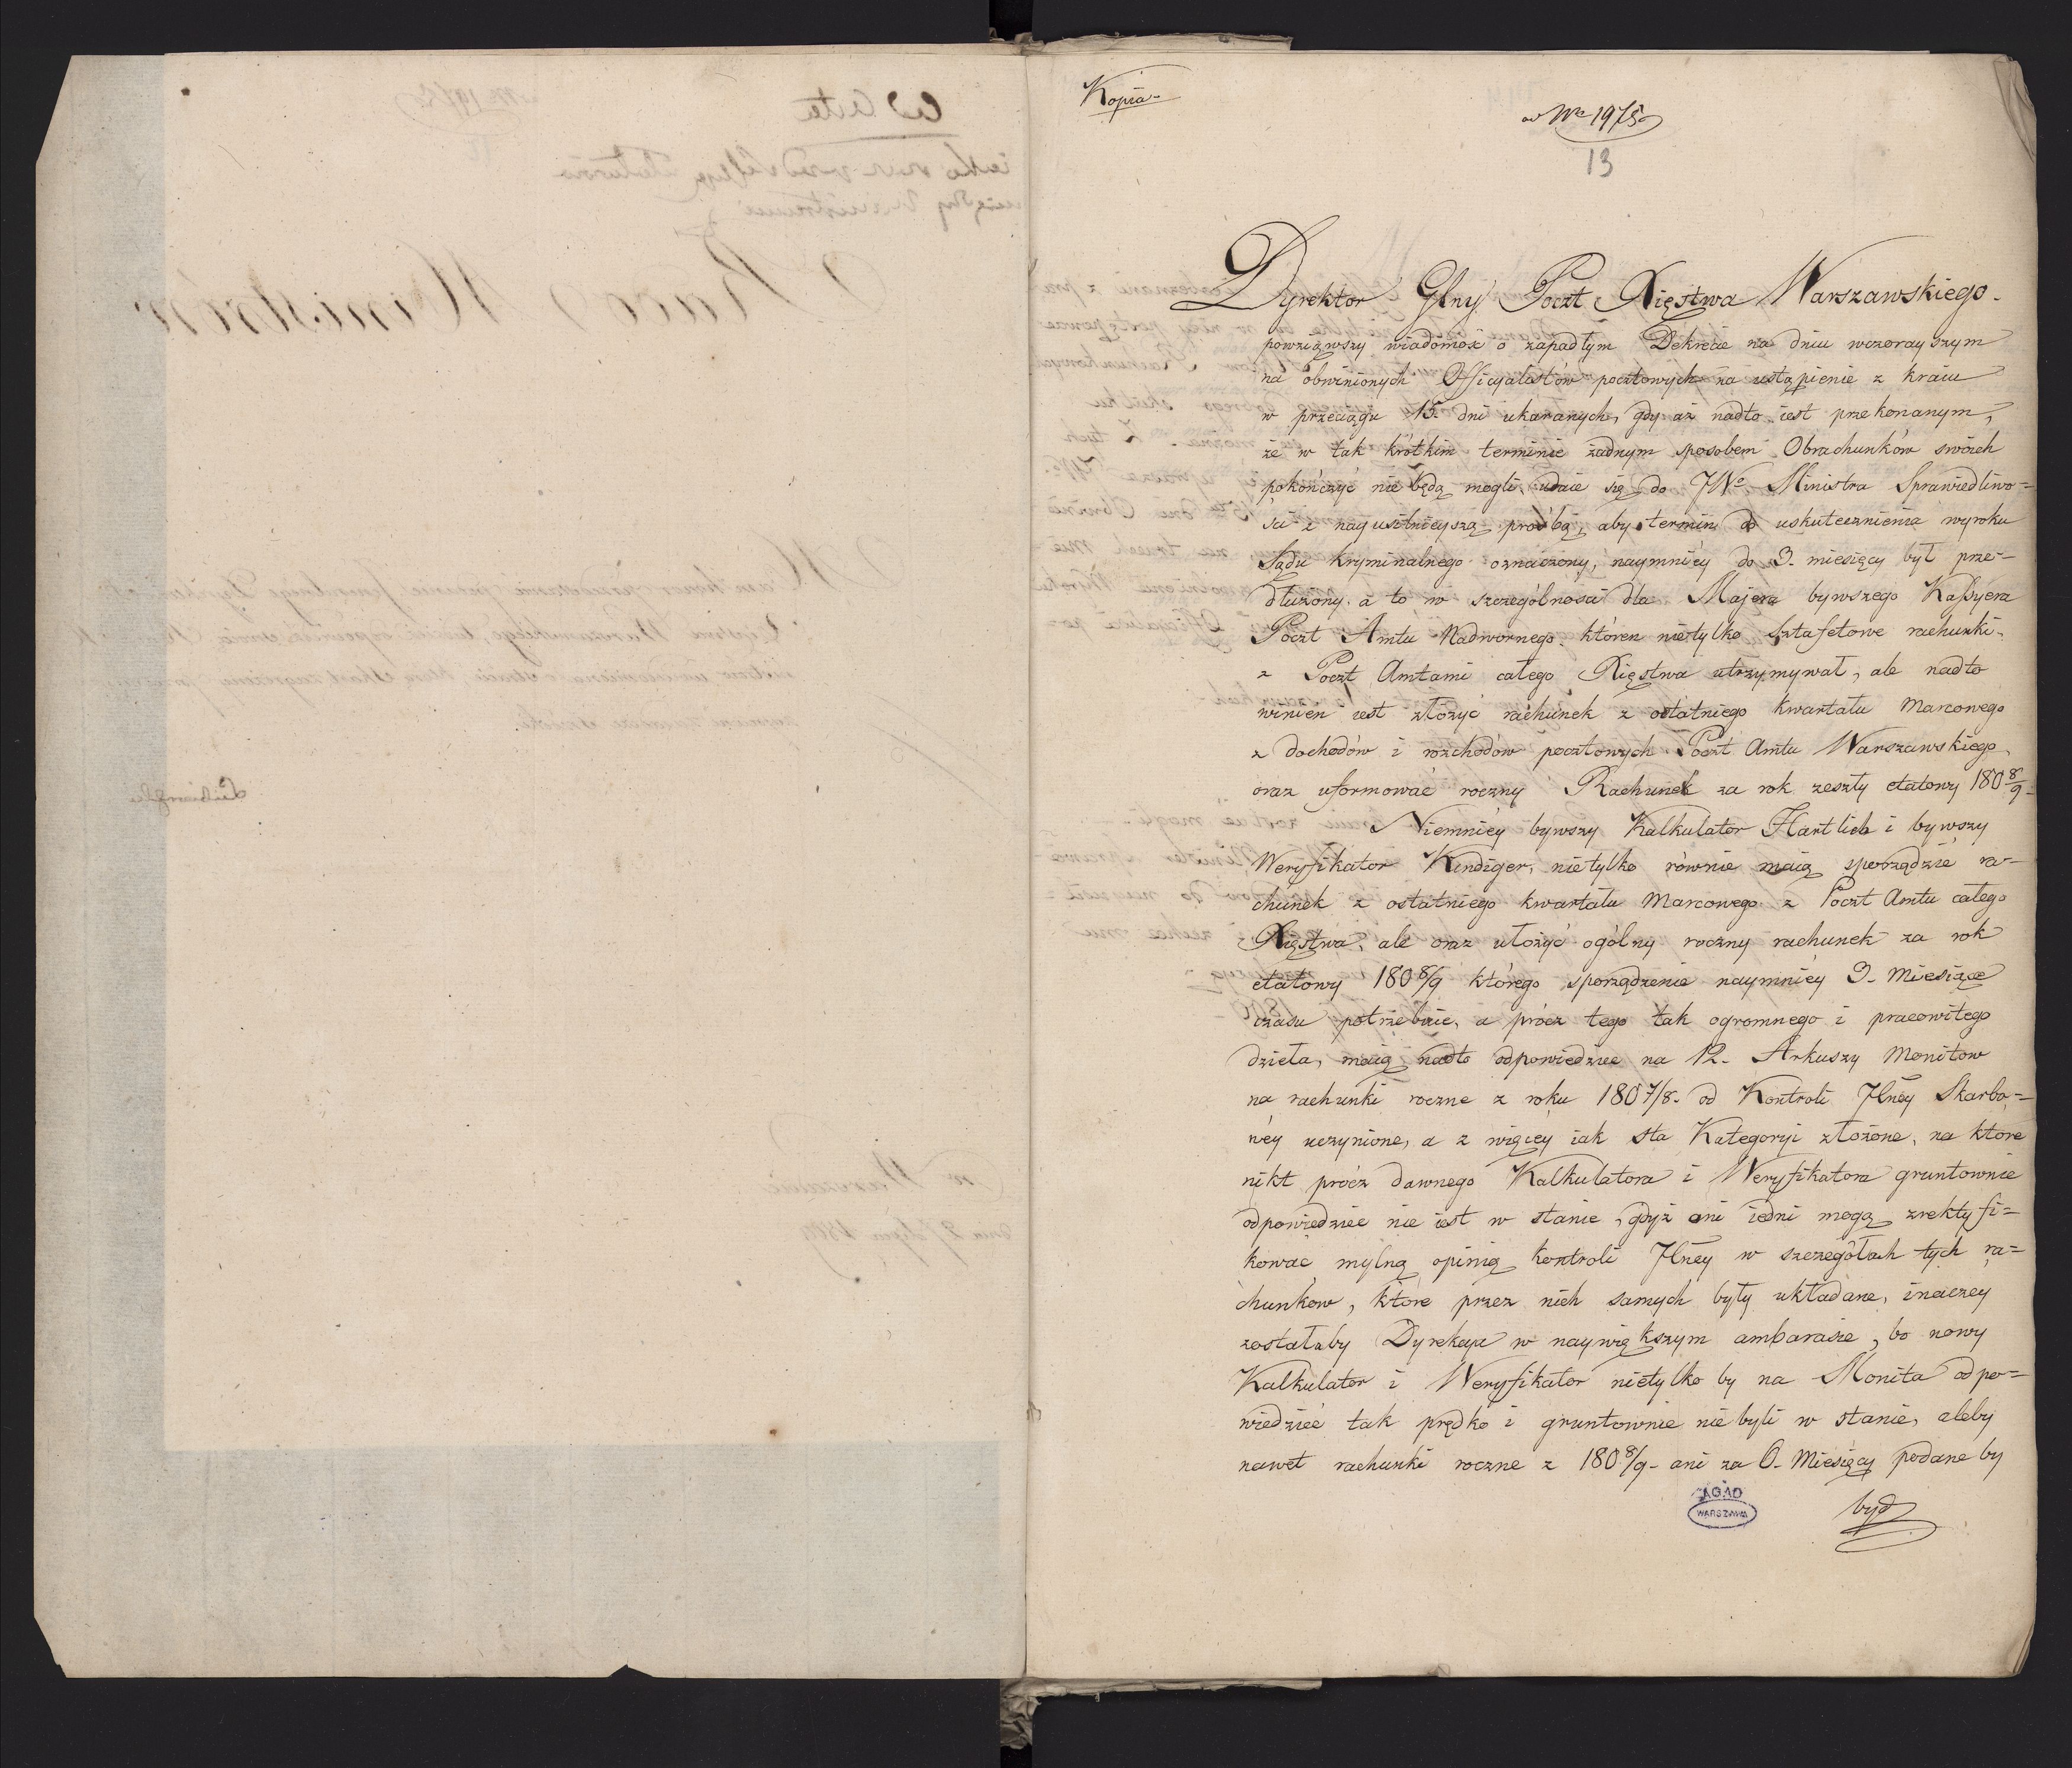 Kopia
ad Nro 1975
13
Dyrektor Glny Poczt Xięstwa Warszawskiego
powziąwszy wiadomość o zapadłym Dekrecie na dniu wczorayszym
na obwinionych Officyalistów pocztowych na ustąpienie z kraiu
w przeciągu 15 dni ukaranych, gdy aż nadto iest przekonanym,
że w tak krótkim terminie żadnym sposobem Obrachunków swoich
pokończyć nie będą mogli, udaie się do JWo Ministra Sprawiedliwo=
ści z nayusilnieyszą prośbą, aby termin do uskutecznienia wyroku
Sądu Kryminalnego oznaczony, naymniéy do 3. miesięcy był prze=
dłużony. a to w szczególności dla Majera bywszego Kassyera
Poczt Amtu Nadwornego. któren nietylko Sztafetowe rachunki
z Poczt Amtami całego Xięstwa utrzymywał, ale nadto
winien iest złożyć rachunek z ostatniego kwartału Marcowego
z dochodów i rozchodów pocztowych Poczt Amtu Warszawskiego,
oraz uformować roczny Rachunek za rok zeszły etatowy 180 8/9
Niemniéy bywszy Kalkulator Hartlieb i bywszy
Weryfikator Kindiger, nietylko równie maią sporządzić ra=
chunek z ostatniego kwartału Marcowego z Poczt Amtu całego
Xięstwa, ale oraz ułożyć ogólny roczny rachunek za rok
etatowy 180 8/9 którego sporządzenie naymniéy 3. Miesiące
czasu potrzebuie, a prócz tego tak ogromnego i pracowitego
dzieła, maią nadto odpowiedziec na 12. Arkuszy Monitow
na rachunki roczne z roku 180 7/8. od Kontroli Jlnéy Skarbo=
wéy uczynione, a z więcey iak sta Kategoryi złożone, na które
nikt prócz dawnego Kalkulatora i Weryfikatora gruntownie
odpowiedziec nie iest w stanie, gdyż oni iedni mogą zrektyfi=
kować mylną opinią kontroli Jlnéy w szczegółach tych ra=
chunków, które przez nich samych były układane, inaczey
zostałaby Dyrekcya w naywiększym ambarasie, bo nowy
Kalkulator i Weryfikator nietylko by na Monita odpo=
wiedzieć tak prędko i gruntownie niebyli w stanie, aleby
nawet rachunki roczne z 180 8/9 ani za 6. Miesięcy podane by
bydź
AGAD
WARSZAWA